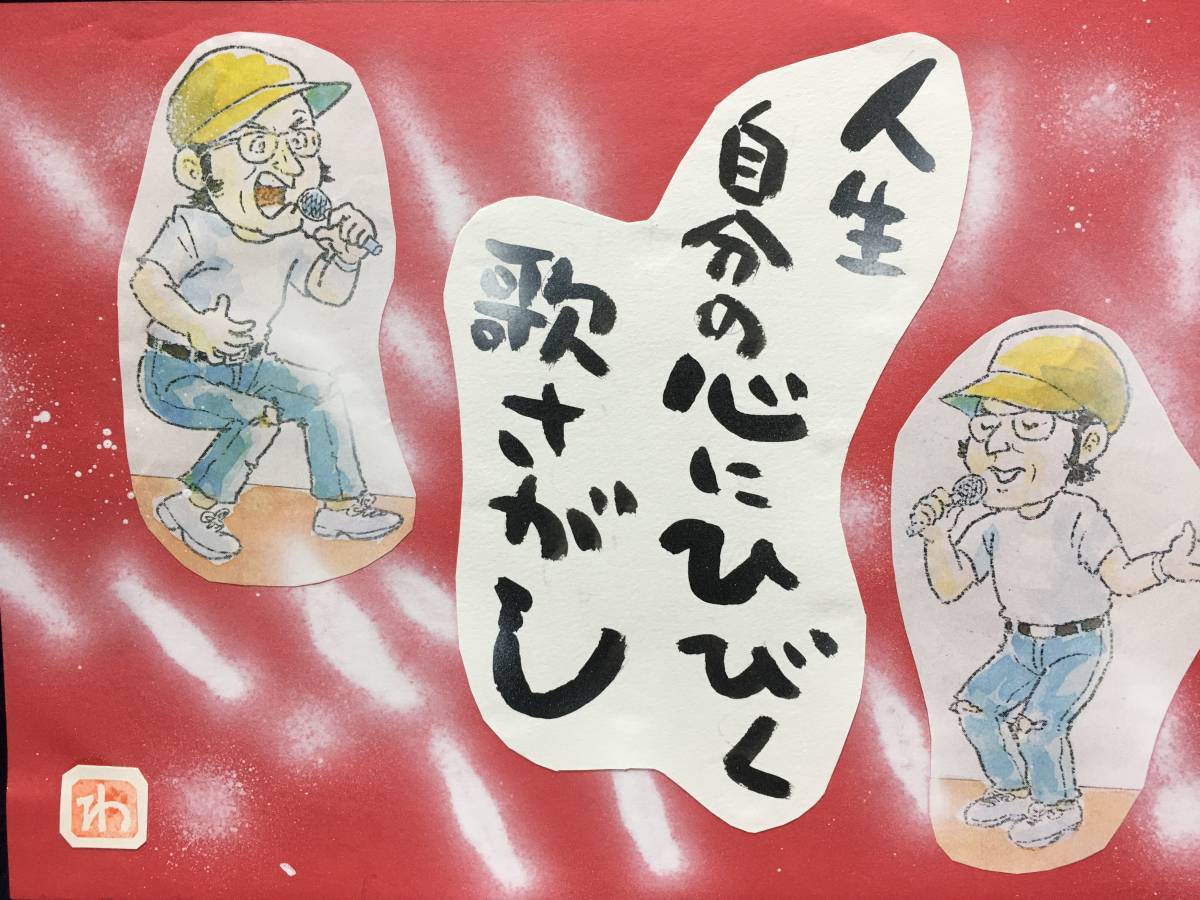 人生
自分の心にひびく
歌さがし
わ